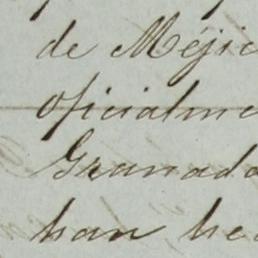 de Méjic
oficialme
Granada
han hec